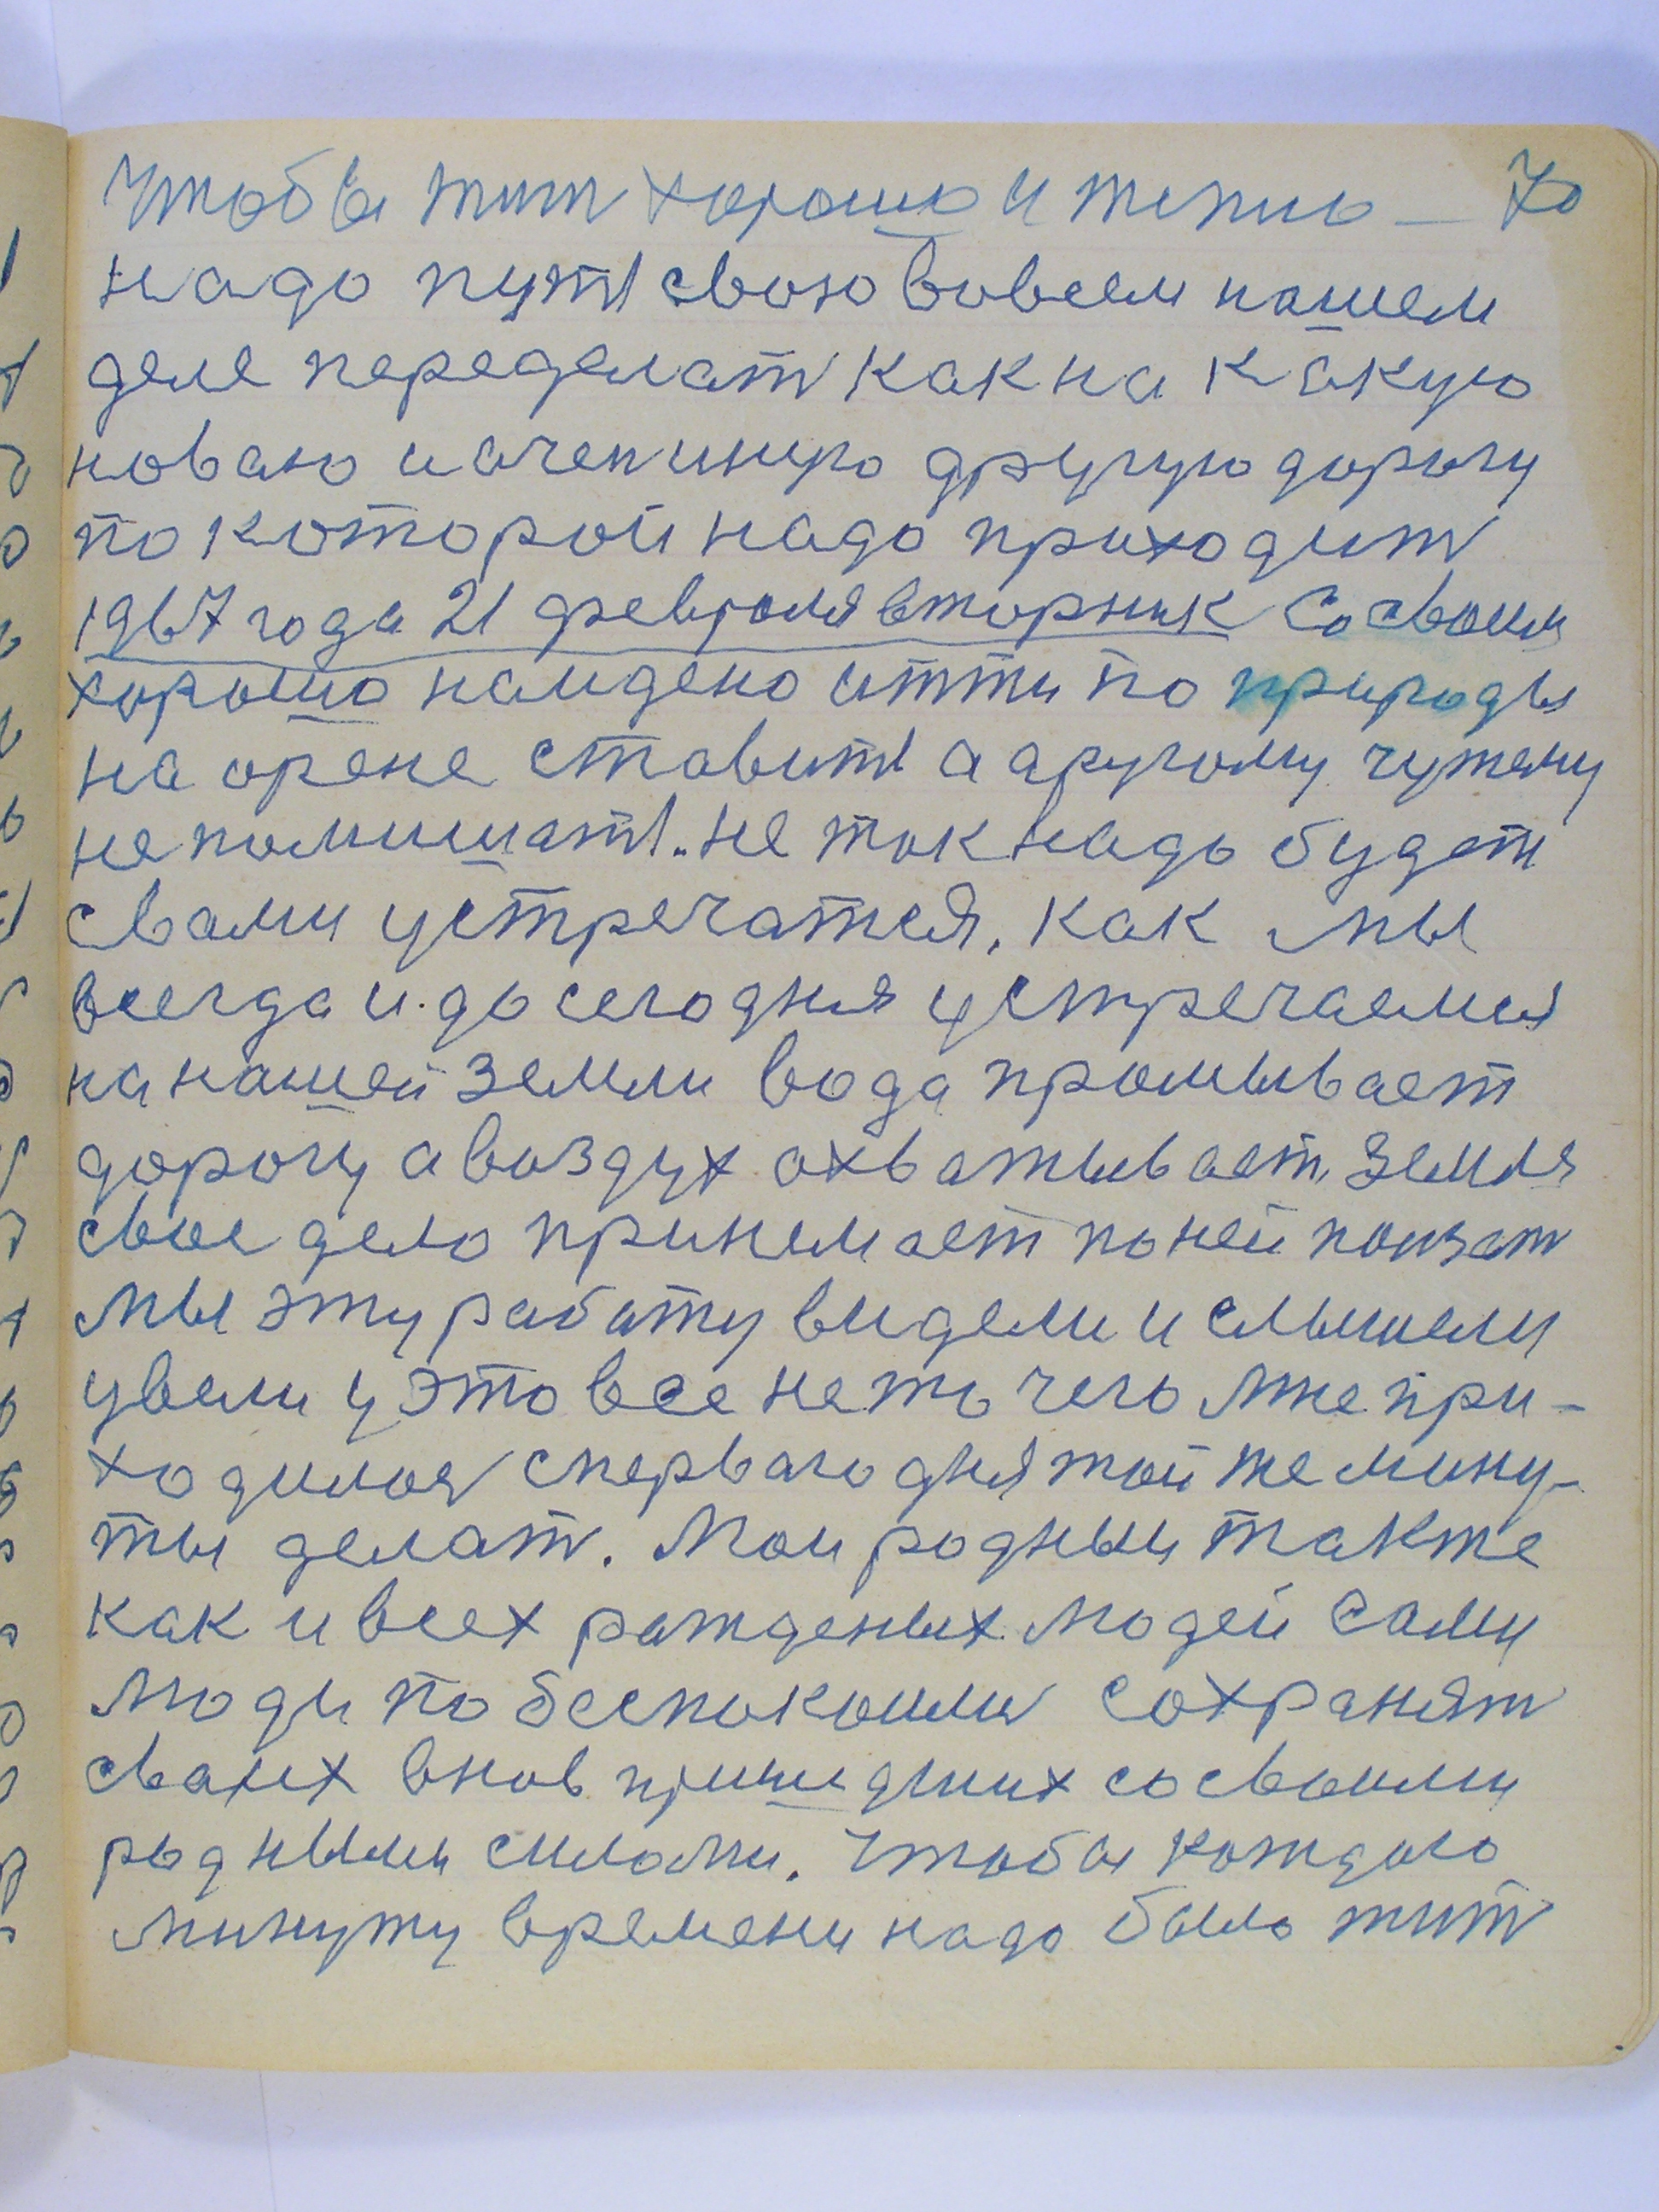 Чтобы жит хорошо и тепло — 70
надо путь свою вовсем нашем
деле переделат как на какую
новаю и очен иную другую дорогу
по которой надо приходит
1967 года 21 февроля вторник Со своим
хорошо найдено итти по природы
на орене ставить а другому чужому
не помишать. не так надо будет
с вами устречатся, как мы
всегда и до сегодня устречаемся
на нашей земли вода промывает
дорогу а воздух охватывает, земля
свое дело принемает по ней ползат
мы эту работу видели и слышели
увели у это все не то чего мне при-
ходилов сперваго дня той же мину-
ты делат. Мои родныи также
как и всех рожденых людей сами
люди по беспокоили сохранят
своих внов пришедших со своими
родными силами. Чтобы каждого
минуту времени надо было жит